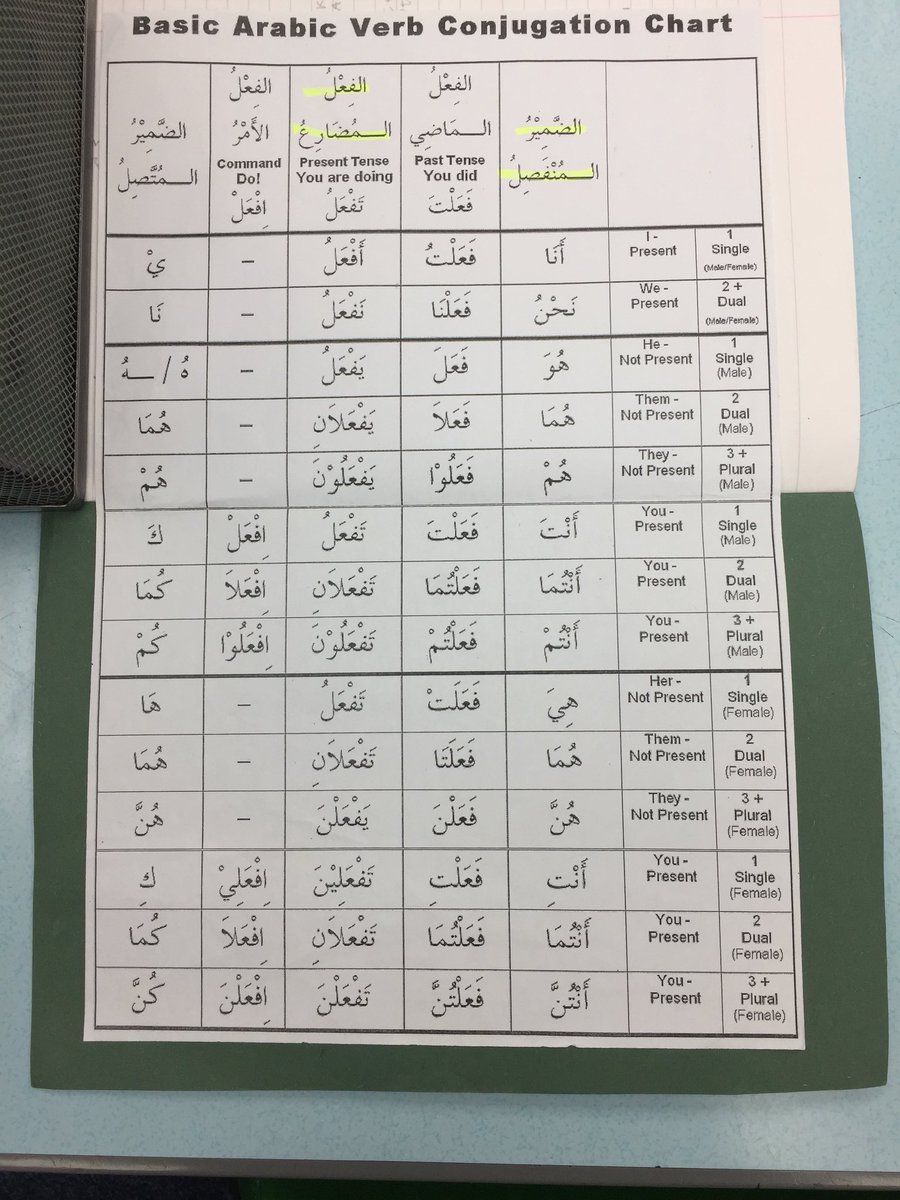 Basic Arabic Verb Conjugation Chart
الضَّمِيْرُ
المُنْفَصِلُ
الفِعْلُ
المَاضِي
Past Tense
You did
فَعَلْتَ
الفِعْلُ
المُضَارِعُ
Present Tense
You are doing
تَفْعَلُ
الفِعْلُ
الأَمْرُ
Command
Do!
اِفْعَلْ
الضَّمِيْرُ
المُتَّصِلُ
1 Single (Male/Female) I - Present أَنَا فَعَلْتُ أَفْعَلُ – يْ
2 + Dual (Male/Female) We - Present نَحْنُ فَعَلْنَا نَفْعَلُ – نَا
1 Single (Male) He - Not Present هُوَ فَعَلَ يَفْعَلُ – هُ / ـهُ
2 Dual (Male) Them - Not Present هُمَا فَعَلاَ يَفْعَلاَنِ – هُمَا
3 + Plural (Male) They - Not Present هُمْ فَعَلُوْا يَفْعَلُوْنَ – هُمْ
1 Single (Male) You - Present أَنْتَ فَعَلْتَ تَفْعَلُ اِفْعَلْ كَ
2 Dual (Male) You - Present أَنْتُمَا فَعَلْتُمَا تَفْعَلاَنِ اِفْعَلاَ كُمَا
3 + Plural (Male) You - Present أَنْتُمْ فَعَلْتُمْ تَفْعَلُوْنَ اِفْعَلُوْا كُمْ
1 Single (Female) Her - Not Present هِيَ فَعَلَتْ تَفْعَلُ – هَا
2 Dual (Female) Them - Not Present هُمَا فَعَلَتَا تَفْعَلاَنِ – هُمَا
3 + Plural (Female) They - Not Present هُنَّ فَعَلْنَ يَفْعَلْنَ – هُنَّ
1 Single (Female) You - Present أَنْتِ فَعَلْتِ تَفْعَلِيْنَ اِفْعَلِيْ كِ
2 Dual (Female) You - Present أَنْتُمَا فَعَلْتُمَا تَفْعَلاَنِ اِفْعَلاَ كُمَا
3 + Plural (Female) You - Present أَنْتُنَّ فَعَلْتُنَّ تَفْعَلْنَ اِفْعَلْنَ كُنَّ